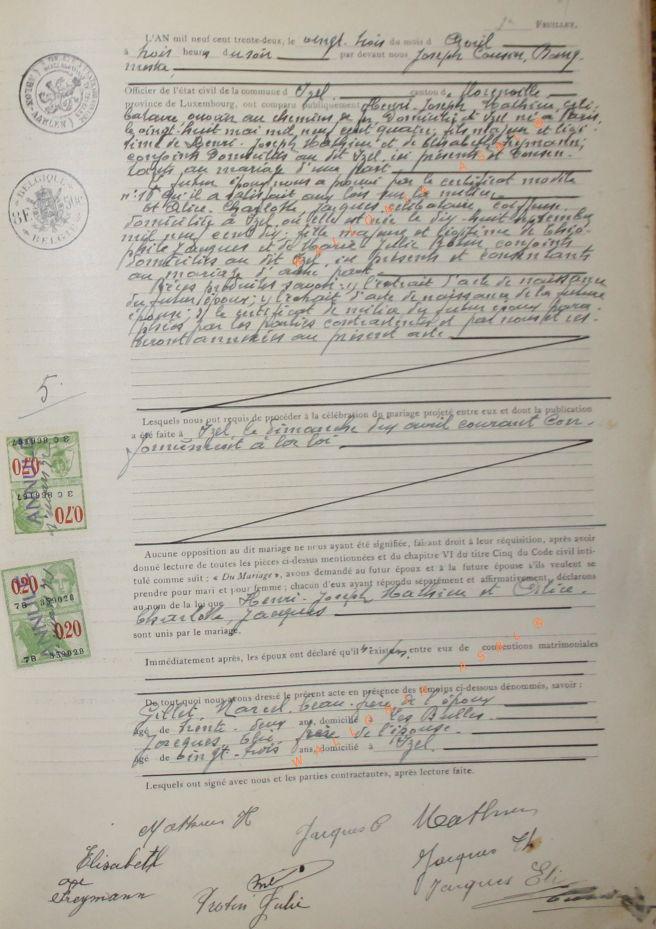 FEUILLET.
L'AN mil neuf cent trente-deux, le vingt-trois du mois d'Avril
à trois heures du soir par devant nous Joseph Bourg-
mestre,
Officier de l'état civil de la commune d'Izel canton de Florenville
province de Luxembourg, ont comparu publiquement Henri-Joseph Mathieu, céli-
bataire, ouvrier au chemins de fer, domicilié à Izel né à Paris,
le vingt-huit mai mil neuf cent quatre, fils majeur et légi-
time de Henri-Joseph Mathieu et de Elisabeth Freymann,
conjoints domiciliés au dit Izel, ici présents et consen-
tants au mariage d'une part
Le futur époux nous a prouvé par le certificat modèle
n° 18 qu'il a satisfait aux lois sur la milice.
Et Charlotte Jacques, célibataire,
domiciliée à Izel, où elle est née le dix-huit septembre
mil neuf cent dix, fille majeure et légitime de
Jacques et de Julie conjoints
domiciliés au dit Izel, ici présents et consentants
au mariage d'autre part
Pièces produites savoir: 1/ l'extrait d'acte de naissance
du futur époux; 2/ l'extrait d'acte de naissance de la future
épouse; 3/ le certificat de milice du futur époux
par les parties contractantes et par nous et res-
teront annexées au présent acte.
5.
Lesquels nous ont requis de procéder à la célébration du mariage projeté entre eux et dont la publication
a été faite à Izel, le dimanche dix avril courant con-
formément à la loi
Aucune opposition au dit mariage ne nous ayant été signifiée, faisant droit à leur réquisition, après avoir
donné lecture de toutes les pièces ci-dessus mentionnées et du chapitre VI du titre Cinq du Code civil inti-
tulé comme suit : « Du Mariage », avons demandé au futur époux et à la future épouse s'ils veulent se
prendre pour mari et pour femme ; chacun d'eux ayant répondu séparément et affirmativement, déclarons
au nom de la loi que Henri-Joseph Mathieu et
Charlotte, Jacques
sont unis par le mariage.
Immédiatement après, les époux ont déclaré qu'il n'existe pas entre eux de conventions matrimoniales
De tout quoi nous avons dressé le présent acte en présence des témoins ci-dessous dénommés, savoir :
Gillet, Marcel, beau-frère de l'époux
âgé de trente-deux ans, domicilié à Les Bulles
Jacques frère de l'épouse
âgé de vingt-trois ans, domicilié à Izel
Lesquels ont signé avec nous et les parties contractantes, après lecture faite.
Mathieu H Jacques Mathieu
Elisabeth Jacques
Freymann Julie Jacques
BELGIQUE
BELGIË
0.20
0.70
3 C 866167
0.20
0.20
7B 339028
ANNULÉ